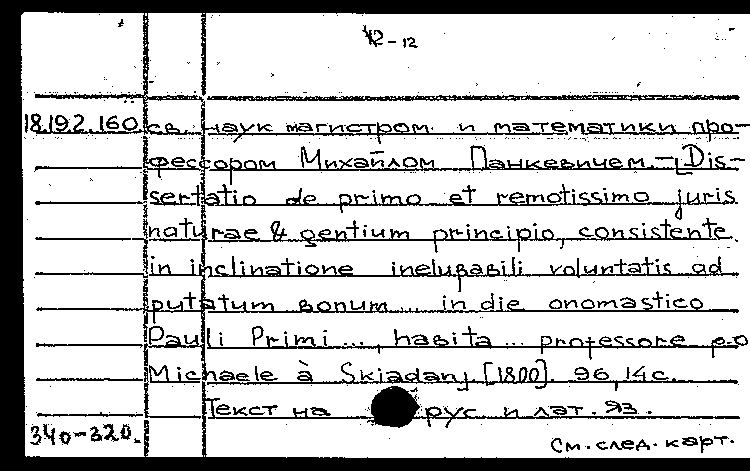 12-12
18.19.2.160. св. наук магистром и математики про-
фессором Михайлом Панкевичем. - [Dis-
sertatio de primo et remotissimo juris
naturae & gentium principio, consistente
in inclinatione inelugabili voluntatis ad
putatum bonum... in die onomastico
Pauli Primi..., habita... professore p.o
Michaele à Skiadany [1800]. 96, 14 с.
Текст на рус. и лат. яз.
340-320.
См. след. карт.